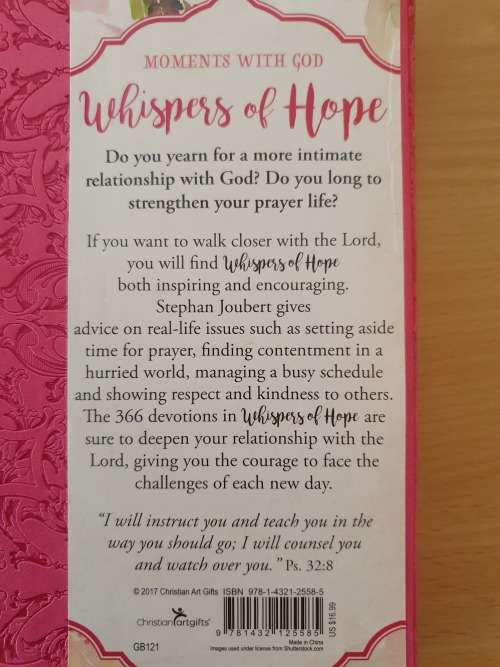 MOMENTS WITH GOD
Whispers of Hope
Do you yearn for a more intimate
relationship with God? Do you long to
strengthen your prayer life?
If you want to walk closer with the Lord,
you will find Whispers of Hope
both inspiring and encouraging.
Stephan Joubert gives
advice on real-life issues such as setting aside
time for prayer, finding contentment in a
hurried world, managing a busy schedule
and showing respect and kindness to others.
The 366 devotions in Whispers of Hope are
sure to deepen your relationship with the
Lord, giving you the courage to face the
challenges of each new day.
“I will instruct you and teach you in the
way you should go; I will counsel you
and watch over you.” Ps. 32:8
© 2017 Christian Art Gifts ISBN 978-1-4321-2558-5
Christian artgifts®
US $16.99
9 781432 125585
GB121
Made in China
Images used under license from Shutterstock.com